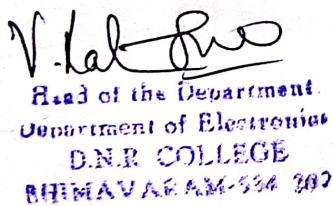 Head of the Department.
Department of Electronics
D.N.R COLLEGE
BHIMAVARAM-534 202